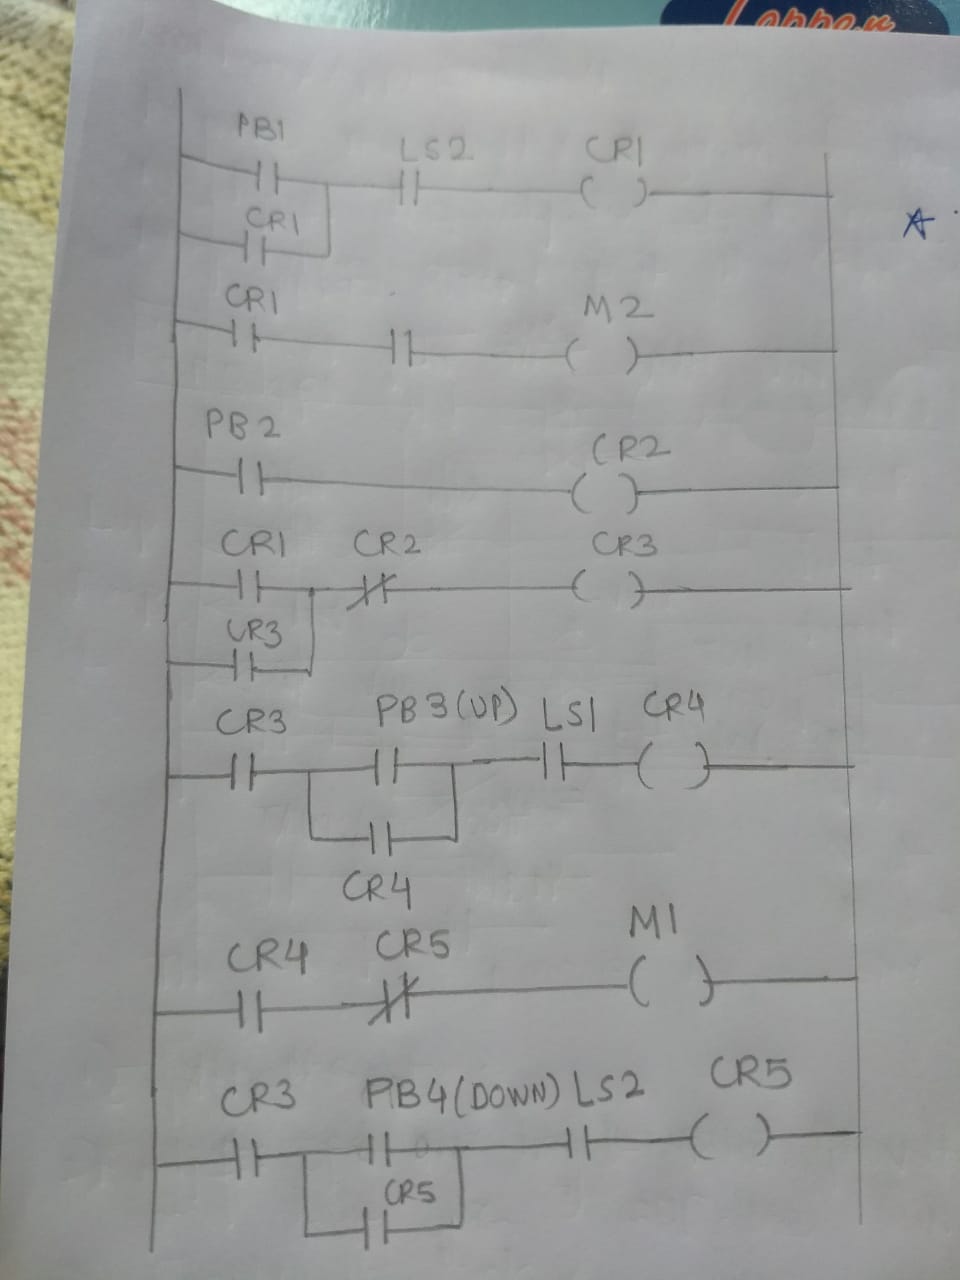 PB1 LS2 CR1
CR1
CR1 M2
PB2 CR2
CR1 CR2 CR3
CR3
CR3 PB3(UP) LS1 CR4
CR4
CR4 CR5 M1
CR3 PB4(DOWN) LS2 CR5
CR5